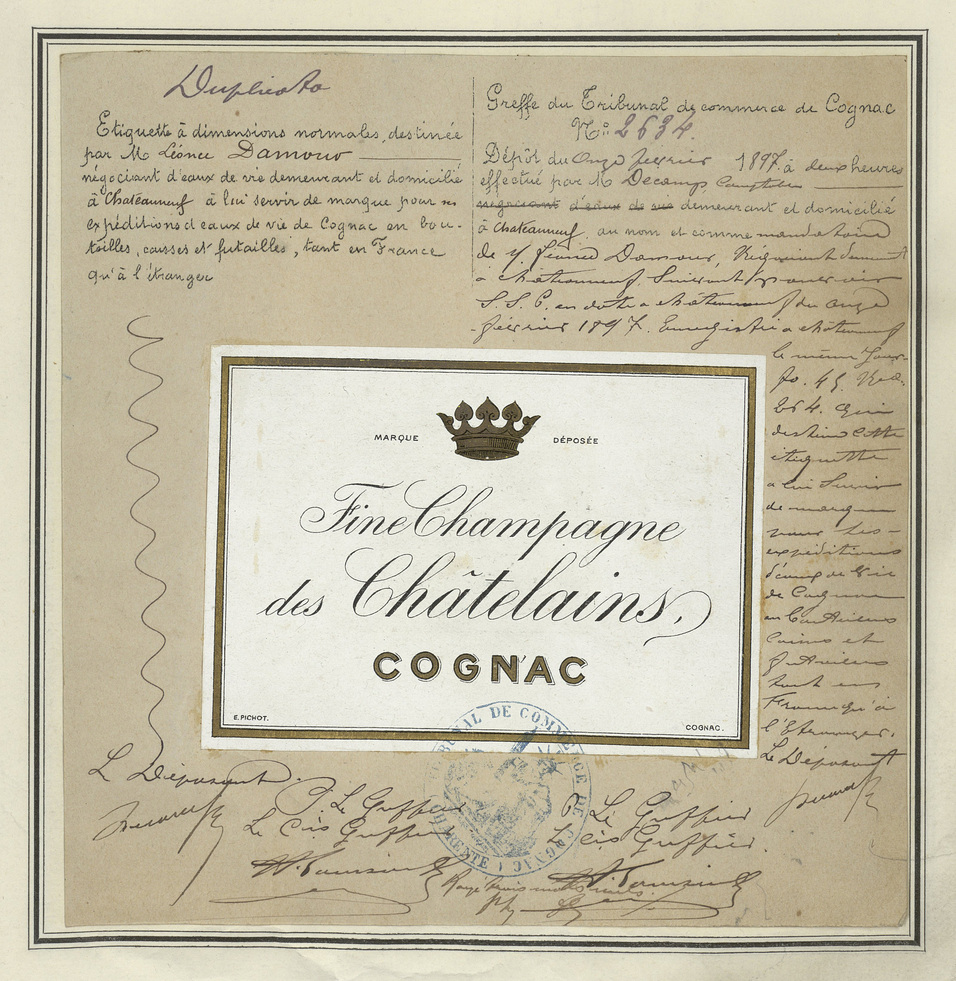 Duplicata
Etiquette à dimensions normales, destinée
par Mr Léonce Damour
négociant d'eaux de vie demeurant et domicilié
à Chateauneuf à lui servir de marque pour ses
expéditions d'eaux de vie de Cognac en bou-
teilles, caisses et futailles, tant en France
qu'à l'étranger
Greffe du Tribunal de commerce de Cognac
No: 2634.
Dépôt du onze février 1897. à deux heures
effectué par Mr Decamp, Comptable
négociant d'eaux de vie demeurant et domicilié
à Chateauneuf, au nom et comme mandataire
de Damour, Négociant demeurant
à Châteauneuf, Suivant pouvoir
S. S. P. en date à châteauneuf du onze
février 1897. Enregistré à châteauneuf
le même Jour
fo. 45
264. qui
destine cette
étiquette
à lui Servir
de marque
pour les
expéditions
d'eaux de vie
de Cognac
en Bouteilles
Caisses et
futailles
tant en
France qu'à
l'Etranger.
Le Déposant
MARQUE DÉPOSÉE
Fine Champagne
des Châtelains,
COGNAC
E. PICHOT.
COGNAC.
TRIBUNAL DE COMMERCE DE COGNAC (CHARENTE)
L Déposant.
P. Le Greffier
Le Cis Greffier
P. Le Greffier
Le Cis Greffier.
Rayé trois mots nuls.